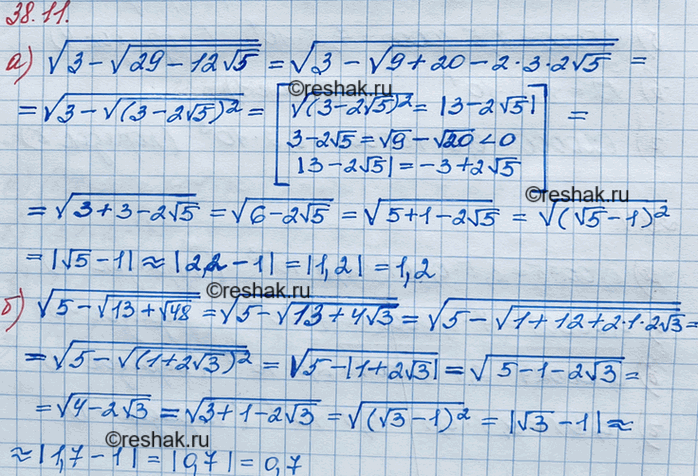 38.11.
а) √(3-√(29-12√5)) = √(3-√(9+20-2·3·2√5)) =
©reshak.ru
= √(3-√((3-2√5)²)) = [ √((3-2√5)²) = |3-2√5|
3-2√5 = √9 - √20 < 0
|3-2√5| = -3+2√5 ] =
©reshak.ru
= √(3+3-2√5) = √(6-2√5) = √(5+1-2√5) = √((√5-1)²)
= |√5-1| ≈ |2,2-1| = |1,2| = 1,2
©reshak.ru
б) √(5-√(13+√48)) = √(5-√(13+4√3)) = √(5-√(1+12+2·1·2√3)) =
©reshak.ru
= √(5-√((1+2√3)²)) = √(5-|1+2√3|) = √(5-1-2√3) =
= √(4-2√3) = √(3+1-2√3) = √((√3-1)²) = |√3-1| ≈
©reshak.ru
≈ |1,7-1| = |0,7| = 0,7